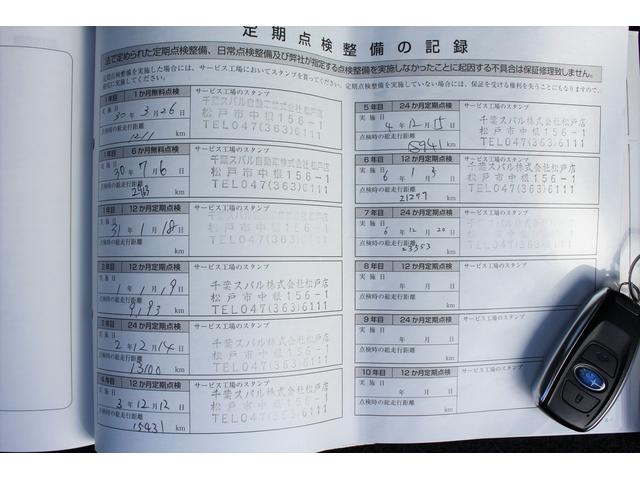 定期点検整備の記録
法で定められた定期点検整備、日常点検整備及び弊社が指定する点検整備を実施しなかったことに起因する不具合は保証修理致しません。
定期点検整備を実施した場合には、サービス工場においてスタンプを貰ってください。定期点検整備を実施していない場合には、保証を受ける権利を失うことにもなりますので、
確実に実施してください。
1年目 1か月無料点検 サービス工場のスタンプ
実施日 30年3月26日
点検時の総走行距離
1211 km
千葉スバル自動車株式会社松戸店
松戸市中根156-1
TEL047(363)6111
1年目 6か月無料点検 サービス工場のスタンプ
実施日 30年7月6日
点検時の総走行距離
km
千葉スバル自動車株式会社松戸店
松戸市中根156-1
TEL047(363)6111
1年目 12か月定期点検 サービス工場のスタンプ
実施日 31年1月18日
点検時の総走行距離
km
松戸市中根156-1
TEL047(363)6111
2年目 12か月定期点検 サービス工場のスタンプ
実施日 1年1月19日
点検時の総走行距離
9,193 km
千葉スバル株式会社松戸店
松戸市中根156-1
TEL047(363)6111
3年目 24か月定期点検 サービス工場のスタンプ
実施日 2年12月14日
点検時の総走行距離
13100 km
千葉スバル株式会社松戸店
松戸市中根156-1
TEL047(363)6111
4年目 12か月定期点検 サービス工場のスタンプ
実施日 3年12月12日
点検時の総走行距離
15431 km
千葉スバル株式会社松戸店
松戸市中根156-1
TEL047(363)6111
5年目 24か月定期点検 サービス工場のスタンプ
実施日 4年12月15日
点検時の総走行距離
km
千葉スバル株式会社松戸店
松戸市中根156-1
TEL047(363)6111
6年目 12か月定期点検 サービス工場のスタンプ
実施日 6年1月5日
点検時の総走行距離
21277 km
千葉スバル株式会社松戸店
松戸市中根156-1
TEL047(363)6111
7年目 24か月定期点検 サービス工場のスタンプ
実施日 6年12月20日
点検時の総走行距離
23353 km
千葉スバル株式会社松戸店
松戸市中根156-1
TEL047(363)6111
8年目 12か月定期点検 サービス工場のスタンプ
実施日 年 月 日
点検時の総走行距離
km
9年目 24か月定期点検 サービス工場のスタンプ
実施日 年 月 日
点検時の総走行距離
km
10年目 12か月定期点検 サービス工場のスタンプ
実施日 年 月 日
点検時の総走行距離
km